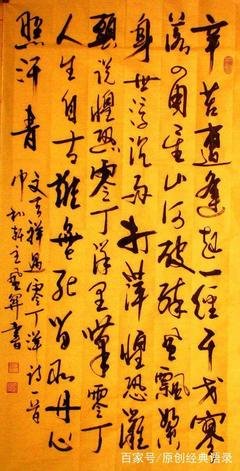 辛苦遭逢起一經干戈寥
落四周星山河破碎風飄絮
身世浮沉雨打萍惶恐灘
頭說惶恐零丁洋里嘆零丁
人生自古誰無死留取丹心
照汗青
文天祥過零丁洋詩一首
軒主
書
百家号/原创经典语录